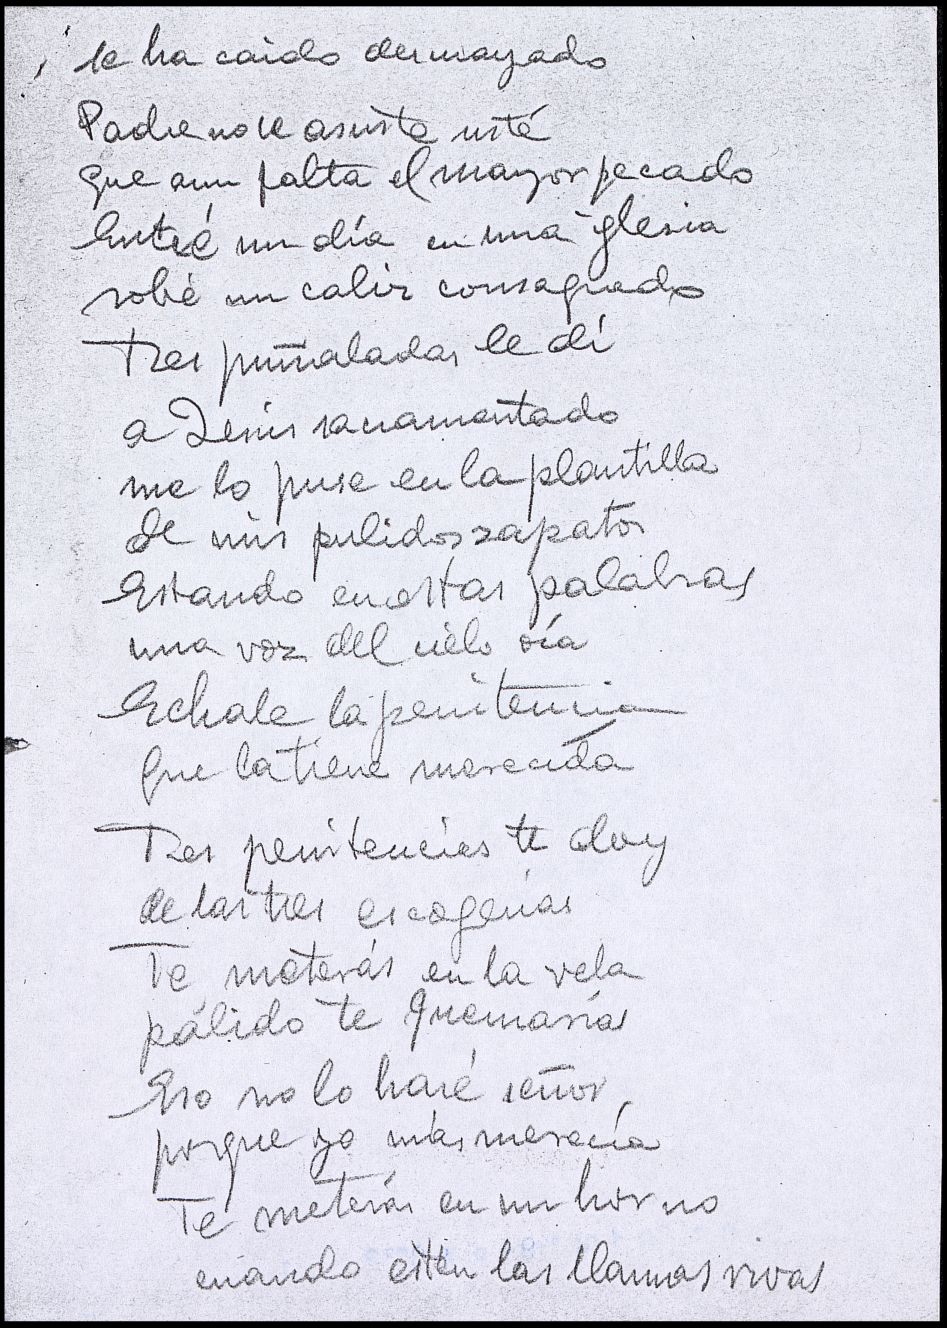 se ha caido desmayado
Padre no se asuste usté
que aun falta el mayor pecado
Entré un dia en una iglesia
robé un caliz consagrado
Tres puñaladas le dí
a Jesús sacramentado
me lo puse en la plantilla
de mis pulidos zapatos
Estando en estas palabras
una voz del cielo oía
Echale la penitencia
que la tiene merecida
Tres penitencias te doy
de las tres escogerias
Te meterás en la vela
pálido te quemarías
Eso no lo haré señor
porque yo más merecía
Te meterás en un horno
cuando estén las llamas vivas